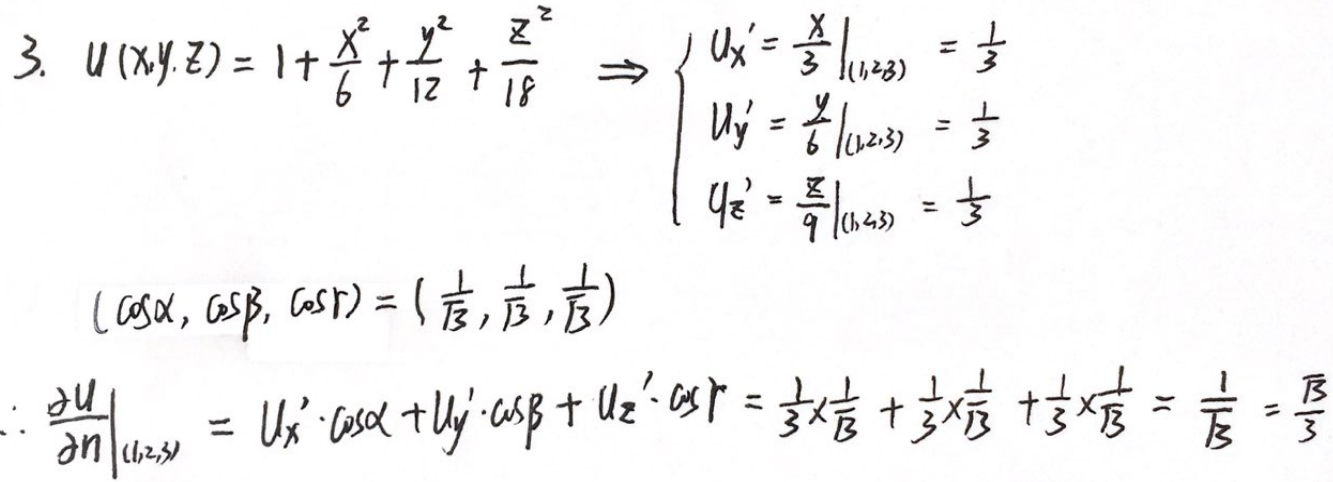 3. u(x,y,z) = 1 + x²/6 + y²/12 + z²/18 ⇒ { uₓ′ = x/3 |(1,2,3) = 1/3
u_y′ = y/6 |(1,2,3) = 1/3
u_z′ = z/9 |(1,2,3) = 1/3
(cosα, cosβ, cosγ) = (1/√3, 1/√3, 1/√3)
∴ ∂u/∂n |(1,2,3) = uₓ′·cosα + u_y′·cosβ + u_z′·cosγ = 1/3 × 1/√3 + 1/3 × 1/√3 + 1/3 × 1/√3 = 1/√3 = √3/3